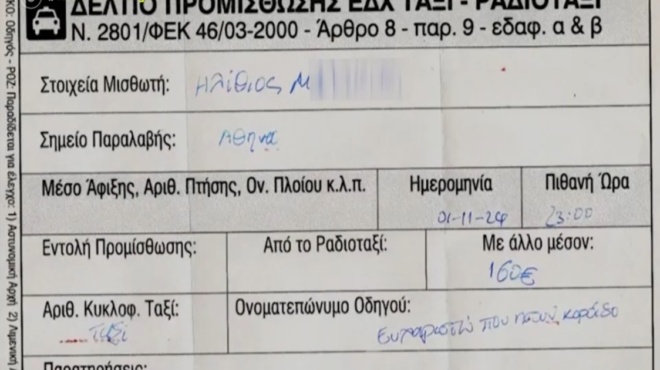 ΔΕΛΤΙΟ ΠΡΟΜΙΣΘΩΣΗΣ ΕΔΧ ΤΑΞΙ - ΡΑΔΙΟΤΑΞΙ
Ν. 2801/ΦΕΚ 46/03-2000 - Άρθρο 8 - παρ. 9 - εδαφ. α & β
Στοιχεία Μισθωτή: Ηλίθιος Μ
Σημείο Παραλαβής: Αθηνα
Μέσο Άφιξης, Αριθ. Πτήσης, Ον. Πλοίου κ.λ.π.
Ημερομηνία
01-11-24
Πιθανή Ώρα
23:00
Εντολή Προμίσθωσης:
Από το Ραδιοταξί:
Με άλλο μέσον:
160€
Αριθ. Κυκλοφ. Ταξί:
Ταξί
Ονοματεπώνυμο Οδηγού:
Ευχαριστώ που κορόιδο
Παρατηρήσεις:
ΚΟ: Οδηγός - ΡΟΖ: Παραδίδεται για έλεγχο: 1) Αστυνομική Αρχή 2) Λιμενική